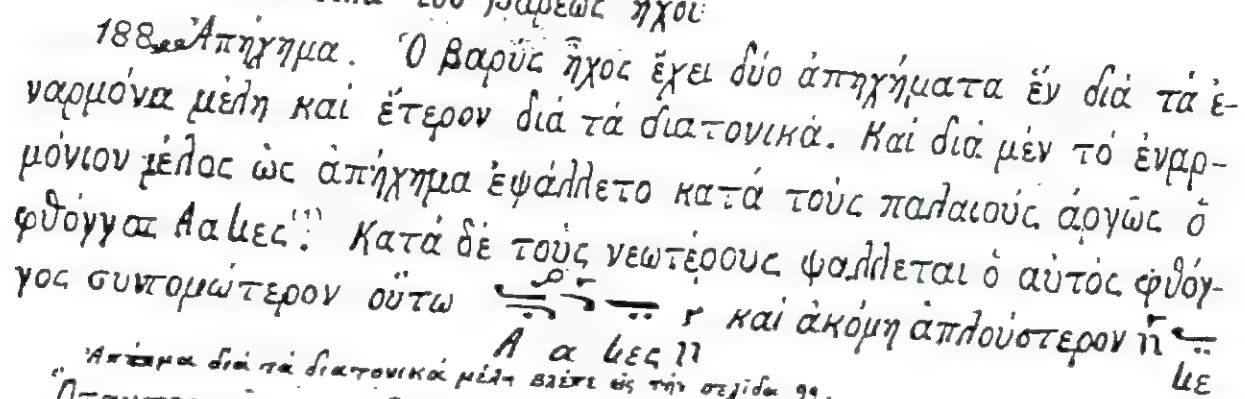 τοῦ βαρέως ἤχου
188 Ἀπήχημα. Ὁ βαρύς ἦχος ἔχει δύο ἀπηχήματα ἕν διά τά ἐ-
ναρμόνια μέλη καί ἕτερον διά τά διατονικά. Καί διά μέν τό ἐναρ-
μόνιον μέλος ὡς ἀπήχημα ἐψάλλετο κατά τούς παλαιούς ἀργῶς ὁ
φθόγγος Ααμες(1). Κατά δέ τούς νεωτέρους ψαλλεται ὁ αὐτός φθόγ-
γος συντομώτερον οὕτω καί ἀκόμη ἁπλούστερον ἤ
Α α μες με
Ἀπήχημα διά τά διατονικά μέλη βλέπε εἰς τήν σελίδα 99.